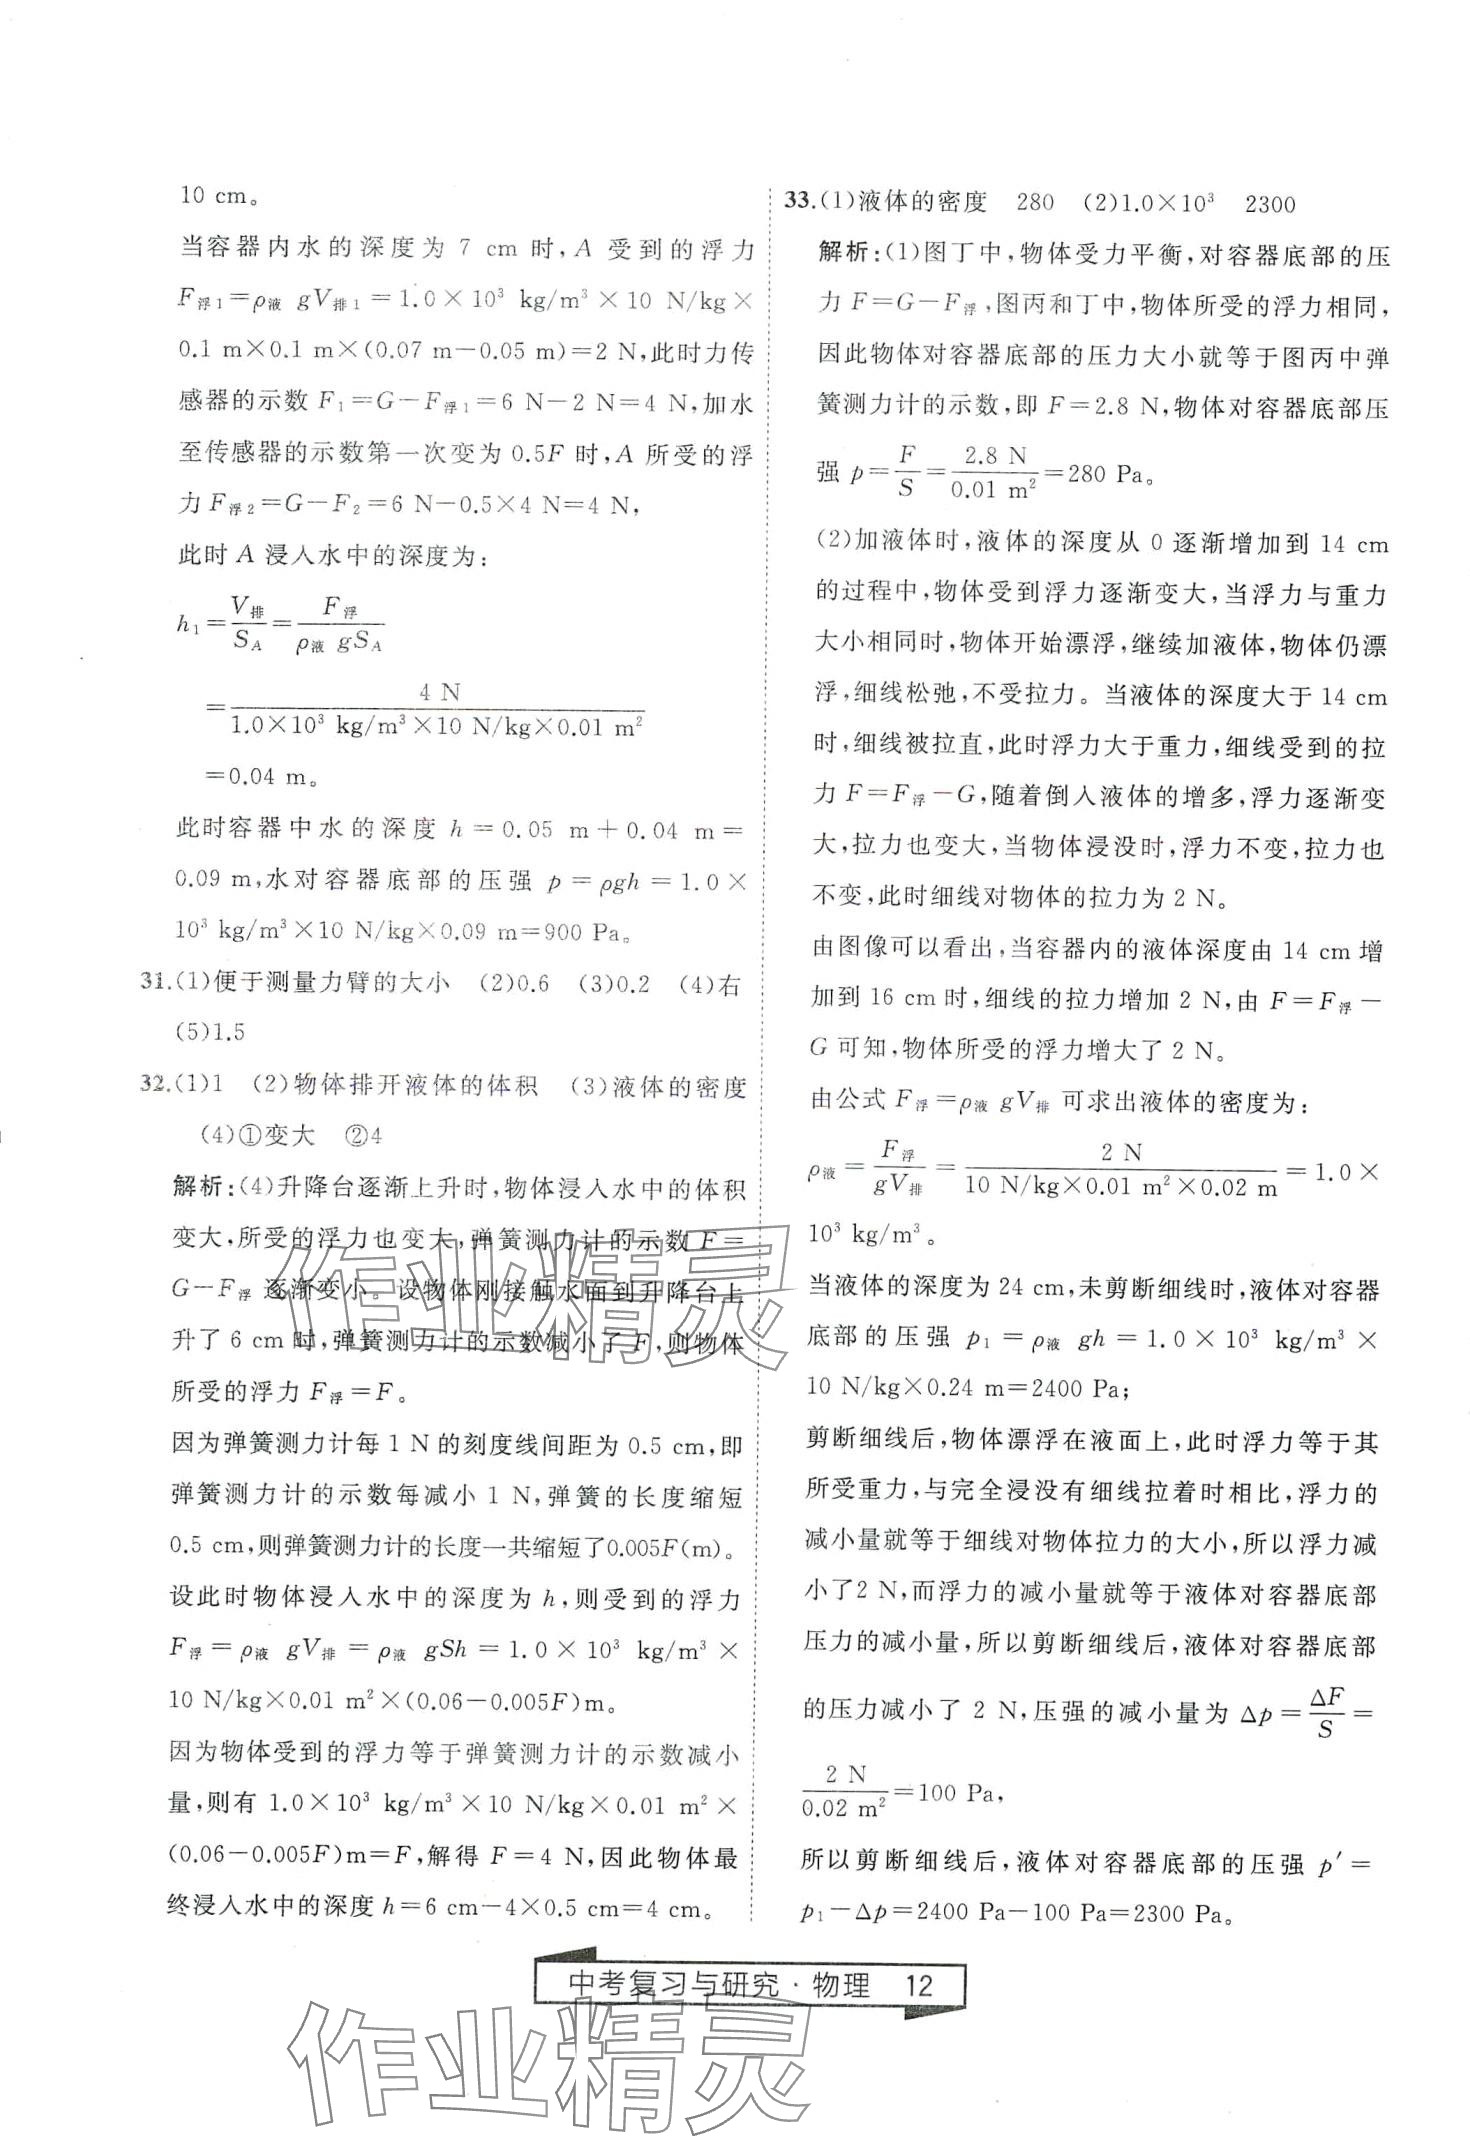 10 cm。
当容器内水的深度为 7 cm 时,A 受到的浮力
F浮1=ρ液 gV排1=1.0×10³ kg/m³×10 N/kg×
0.1 m×0.1 m×(0.07 m-0.05 m)=2 N,此时力传
感器的示数 F₁=G-F浮1=6 N-2 N=4 N,加水
至传感器的示数第一次变为 0.5F 时,A 所受的浮
力 F浮2=G-F₂=6 N-0.5×4 N=4 N,
此时 A 浸入水中的深度为:
h₁=V排/S_A=F浮/(ρ液 gS_A)
=4 N/(1.0×10³ kg/m³×10 N/kg×0.01 m²)
=0.04 m。
此时容器中水的深度 h=0.05 m+0.04 m=
0.09 m,水对容器底部的压强 p=ρgh=1.0×
10³ kg/m³×10 N/kg×0.09 m=900 Pa。
31.(1)便于测量力臂的大小 (2)0.6 (3)0.2 (4)右
(5)1.5
32.(1)1 (2)物体排开液体的体积 (3)液体的密度
(4)①变大 ②4
解析:(4)升降台逐渐上升时,物体浸入水中的体积
变大,所受的浮力也变大,弹簧测力计的示数 F=
G-F浮 逐渐变小。设物体刚接触水面到升降台上
升了 6 cm 时,弹簧测力计的示数减小了 F,则物体
所受的浮力 F浮=F。
因为弹簧测力计每 1 N 的刻度线间距为 0.5 cm,即
弹簧测力计的示数每减小 1 N,弹簧的长度缩短
0.5 cm,则弹簧测力计的长度一共缩短了0.005F(m)。
设此时物体浸入水中的深度为 h,则受到的浮力
F浮=ρ液 gV排=ρ液 gSh=1.0×10³ kg/m³×
10 N/kg×0.01 m²×(0.06-0.005F)m。
因为物体受到的浮力等于弹簧测力计的示数减小
量,则有 1.0×10³ kg/m³×10 N/kg×0.01 m²×
(0.06-0.005F)m=F,解得 F=4 N,因此物体最
终浸入水中的深度 h=6 cm-4×0.5 cm=4 cm。
33.(1)液体的密度 280 (2)1.0×10³ 2300
解析:(1)图丁中,物体受力平衡,对容器底部的压
力 F=G-F浮,图丙和丁中,物体所受的浮力相同,
因此物体对容器底部的压力大小就等于图丙中弹
簧测力计的示数,即 F=2.8 N,物体对容器底部压
强 p=F/S=2.8 N/0.01 m²=280 Pa。
(2)加液体时,液体的深度从 0 逐渐增加到 14 cm
的过程中,物体受到浮力逐渐变大,当浮力与重力
大小相同时,物体开始漂浮,继续加液体,物体仍漂
浮,细线松弛,不受拉力。当液体的深度大于 14 cm
时,细线被拉直,此时浮力大于重力,细线受到的拉
力 F=F浮-G,随着倒入液体的增多,浮力逐渐变
大,拉力也变大,当物体浸没时,浮力不变,拉力也
不变,此时细线对物体的拉力为 2 N。
由图像可以看出,当容器内的液体深度由 14 cm 增
加到 16 cm 时,细线的拉力增加 2 N,由 F=F浮-
G 可知,物体所受的浮力增大了 2 N。
由公式 F浮=ρ液 gV排 可求出液体的密度为:
ρ液=F浮/gV排=2 N/(10 N/kg×0.01 m²×0.02 m)=1.0×
10³ kg/m³。
当液体的深度为 24 cm,未剪断细线时,液体对容器
底部的压强 p₁=ρ液 gh=1.0×10³ kg/m³×
10 N/kg×0.24 m=2400 Pa;
剪断细线后,物体漂浮在液面上,此时浮力等于其
所受重力,与完全浸没有细线拉着时相比,浮力的
减小量就等于细线对物体拉力的大小,所以浮力减
小了2 N,而浮力的减小量就等于液体对容器底部
压力的减小量,所以剪断细线后,液体对容器底部
的压力减小了 2 N,压强的减小量为 Δp=ΔF/S=
2 N/0.02 m²=100 Pa,
所以剪断细线后,液体对容器底部的压强 p′=
p₁-Δp=2400 Pa-100 Pa=2300 Pa。
中考复习与研究·物理 12
作业精灵
作业精灵